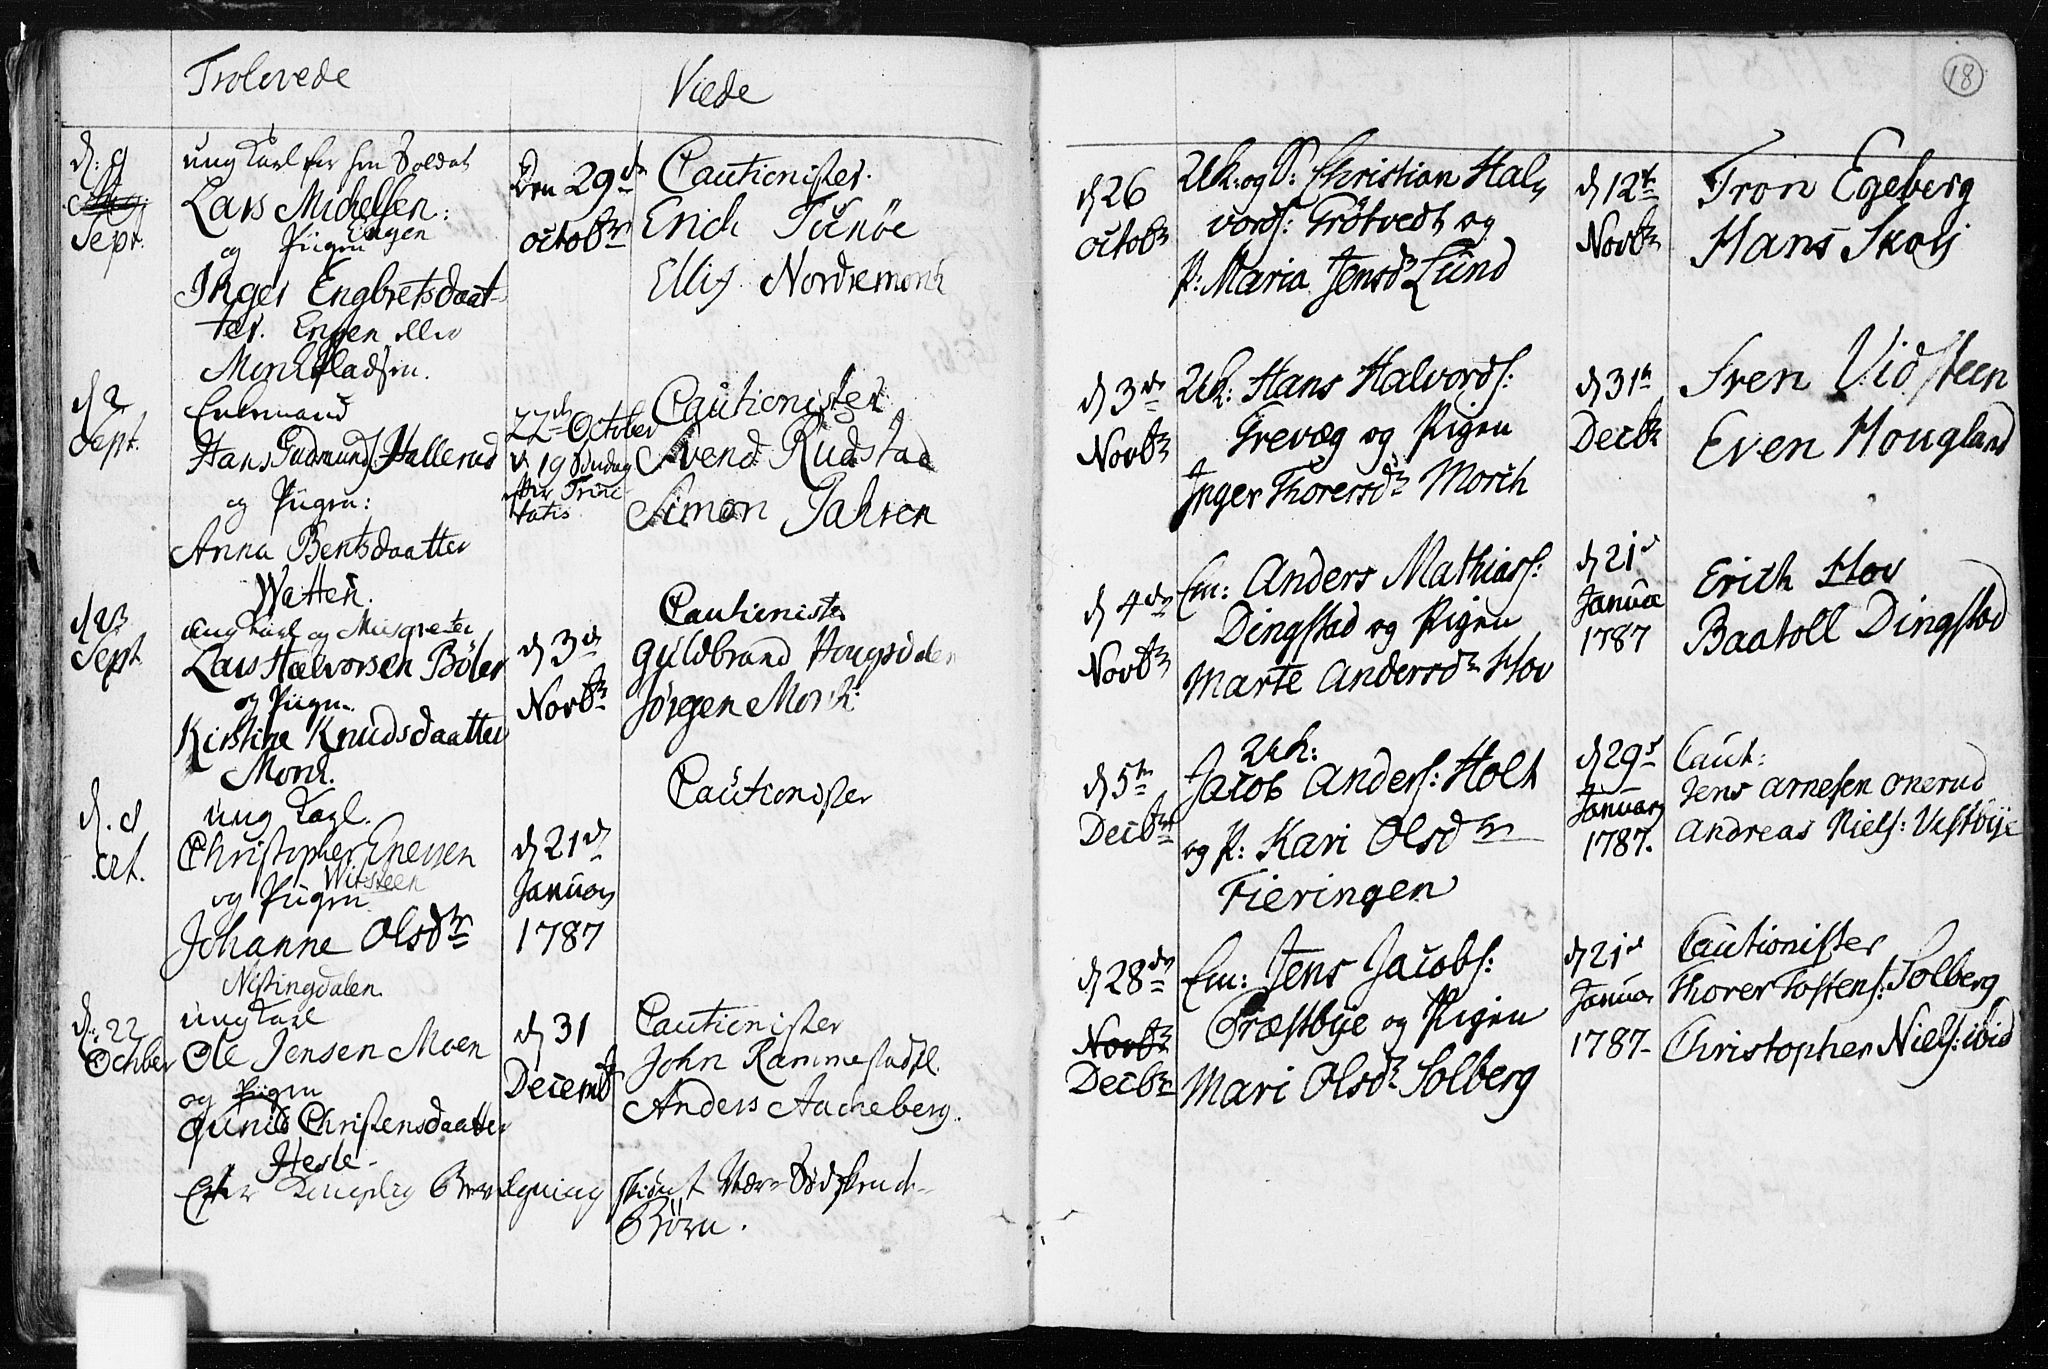 Trolovede
Viede
d: 9
Sept.
ung Karl før hen Soldat
Lars Michelsen:
Engen
og Pigen
Inger Engbretsdaat-
ter. Engen eller
Morkpladsen.
Den 29de
octobr
Cautionister.
Erich Tunøe
Ellif Nordremork
d 2
Sept.
Enkemand
Hans Gudmunds: Hallerud
og Pigen:
Anna Bentsdaatter
Watten.
22de October
d. 19 Søndag
efter Trini
tatis
Cautionister
Svend Rudstad
Simon Jahren
d 23
Sept
ung Karl og Musqveter
Lars Halvorsen Böler
og Pigen
Kirstine Knudsdaatter
Mork.
d 3de
Novbr
Cautionister
Guldbrand Hougsdalen
Jörgen Mork
d. 8
oct.
ung Karl.
Christopher Enersen
Witsteen
og Pigen
Johanne Olsdtr
Nistingdalen
d 21de
Januar
1787
Cautionister
d: 22
October
ung Karl
Ole Jensen Moen
og Pigen
Gunild Christensdaatter
Hesle-
d 31
Decembr
Cautionister
John Rammestad
Anders Aacheberg.
Efter Kongelig Bevilgning skiönt Være Södskende
Börn.
18
d 26
octobr
Uk: og S: Christian Hal,,
vords: Grötvedt og
P: Maria Jensdr Lund
d 12te
Novbr
Tron Egeberg
Hans Skou
d 3de
Novbr
Uk: Hans Halvords:
Grevæg og Pigen
Inger Thoresdr Morch
d 31te
Decbr
Sven Vidsteen
Even Hougland
d 4de
Novbr
Em: Anders Mathias:
Dingstad og Pigen
Marte Andersdr Hov
d 21de
Janua
1787
Erich Hov
Baatoll Dingstad
d 5te
Decbr
Uk:
Jacob Anders: Holt
og P: Kari Olsdtr
Fieringen
d 29de
Januar
1787.
Caut:
Jens Arnesen Onerud
Andreas Niels: Vestbye
d 28de
Novbr
Decbr
Em: Jens Jacobs:
Præstbye og Pigen
Mari Olsdr Solberg
d 21de
Januar
1787-
Cautionister
Thorer Tostens: Solberg
Christopher Niels: ibid